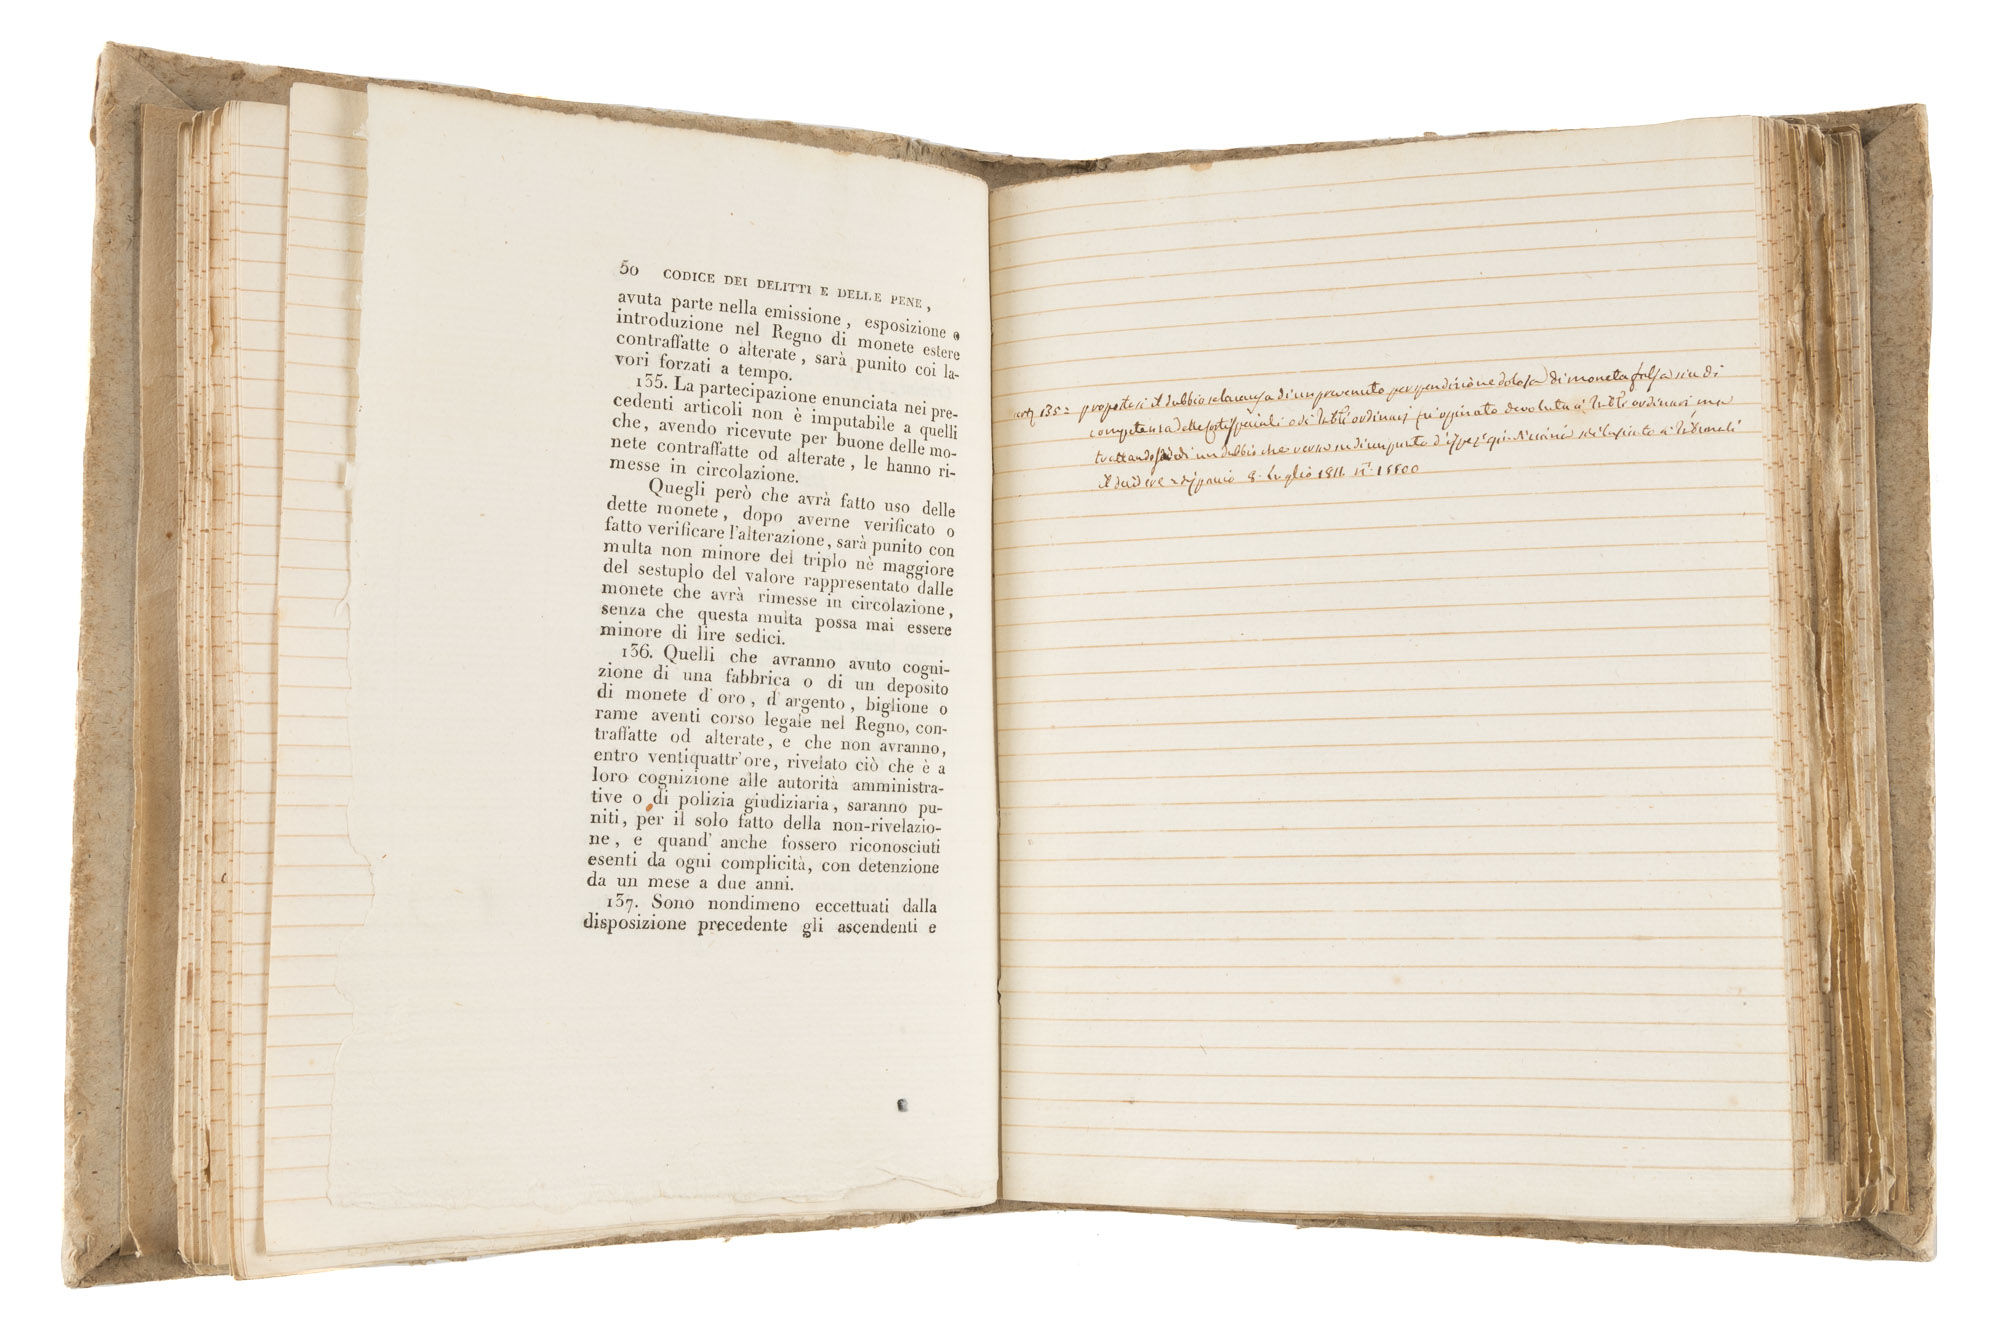 50 CODICE DEI DELITTI E DELLE PENE,
avuta parte nella emissione, esposizione o
introduzione nel Regno di monete estere
contraffatte o alterate, sarà punito coi la-
vori forzati a tempo.
135. La partecipazione enunciata nei pre-
cedenti articoli non è imputabile a quelli
che, avendo ricevute per buone delle mo-
nete contraffatte od alterate, le hanno ri-
messe in circolazione.
Quegli però che avrà fatto uso delle
dette monete, dopo averne verificato o
fatto verificare l'alterazione, sarà punito con
multa non minore del triplo nè maggiore
del sestuplo del valore rappresentato dalle
monete che avrà rimesse in circolazione,
senza che questa multa possa mai essere
minore di lire sedici.
136. Quelli che avranno avuto cogni-
zione di una fabbrica o di un deposito
di monete d'oro, d'argento, biglione o
rame aventi corso legale nel Regno, con-
traffatte od alterate, e che non avranno,
entro ventiquattr'ore, rivelato ciò che è a
loro cognizione alle autorità amministra-
tive o di polizia giudiziaria, saranno pu-
niti, per il solo fatto della non-rivelazio-
ne, e quand'anche fossero riconosciuti
esenti da ogni complicità, con detenzione
da un mese a due anni.
137. Sono nondimeno eccettuati dalla
disposizione precedente gli ascendenti e
art. 135= propostosi il dubbio se la causa di un prevenuto per spendizione dolosa di moneta falsa sia di
competenza delle Corti Speciali o di Trib.li ordinarj fu opinato devoluta a' Trib.li ordinari ma
trattandosi di un dubbio che verte
il decidere = dispaccio 8. Luglio 1811 n.° 15500